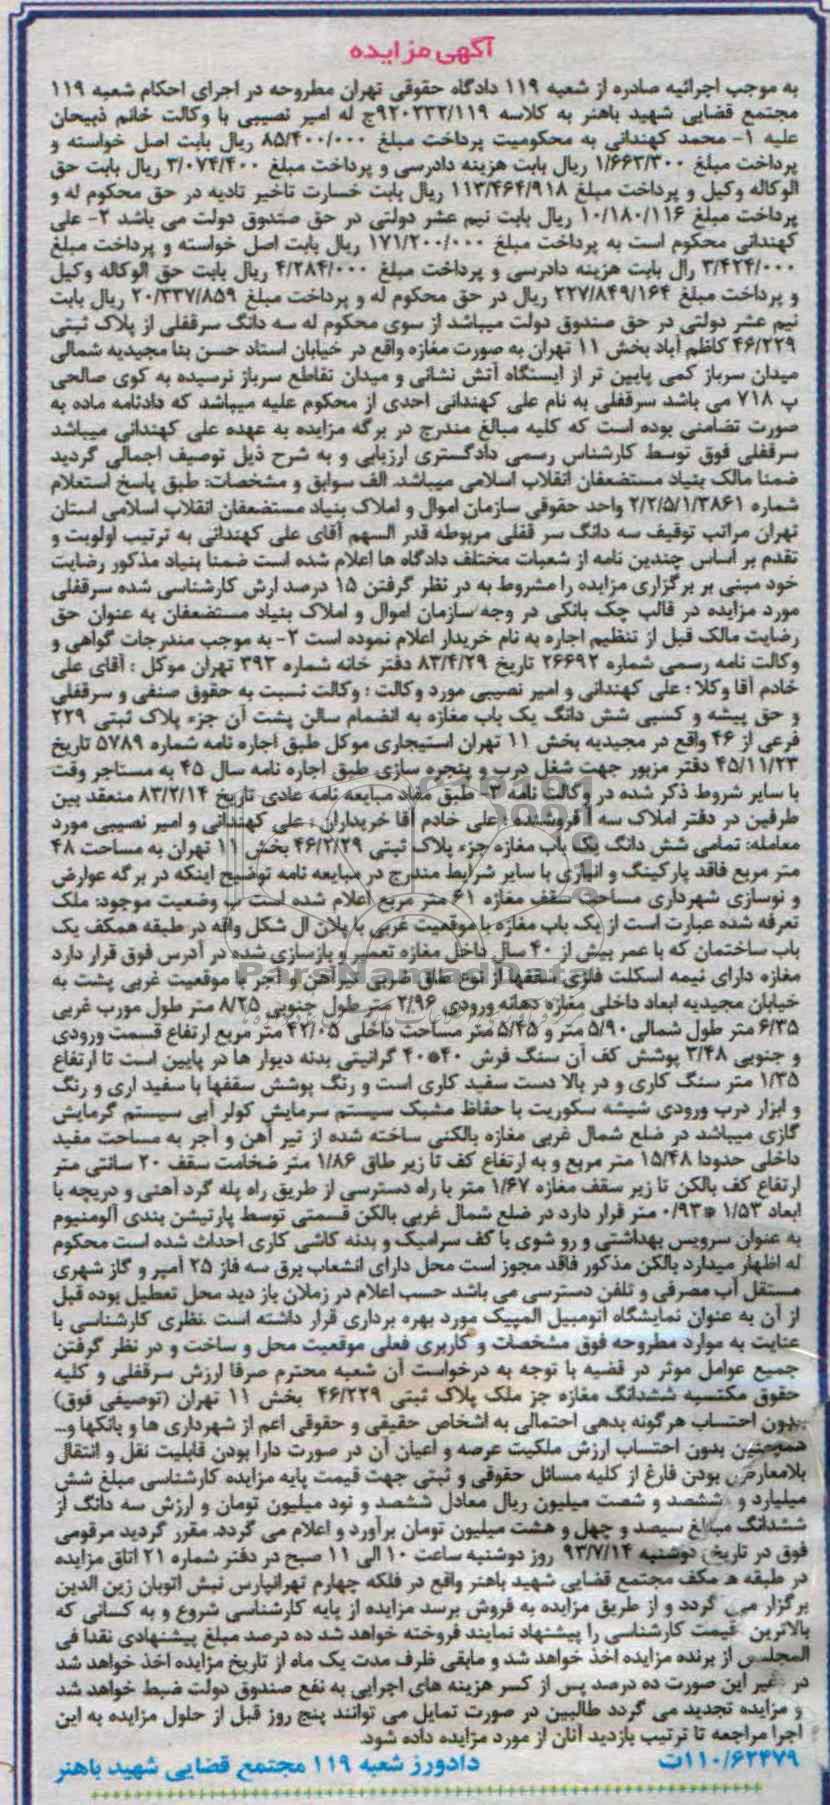 آگهی مزایده
به موجب اجرائیه صادره از شعبه ۱۱۹ دادگاه حقوقی تهران مطروحه در اجرای احکام شعبه ۱۱۹
مجتمع قضایی شهید باهنر به کلاسه ۹۲۰۲۳۲/۱۱۹ج له امیر نصیبی با وکالت خانم ذبیحان
علیه ۱- محمد کهندانی به محکومیت پرداخت مبلغ ۸۵/۴۰۰/۰۰۰ ریال بابت اصل خواسته و
پرداخت مبلغ ۱/۶۶۳/۳۰۰ ریال بابت هزینه دادرسی و پرداخت مبلغ ۳/۰۷۴/۴۰۰ ریال بابت حق
الوکاله وکیل و پرداخت مبلغ ۱۱۳/۴۶۴/۹۱۸ ریال بابت خسارت تاخیر تادیه در حق محکوم له و
پرداخت مبلغ ۱۰/۱۸۰/۱۱۶ ریال بابت نیم عشر دولتی در حق صندوق دولت می باشد ۲- علی
کهندانی محکوم است به پرداخت مبلغ ۱۷۱/۲۰۰/۰۰۰ ریال بابت اصل خواسته و پرداخت مبلغ
۳/۴۲۴/۰۰۰ رال بابت هزینه دادرسی و پرداخت مبلغ ۴/۲۸۴/۰۰۰ ریال بابت حق الوکاله وکیل
و پرداخت مبلغ ۲۲۷/۸۴۹/۱۶۴ ریال در حق محکوم له و پرداخت مبلغ ۲۰/۳۳۷/۸۵۹ ریال بابت
نیم عشر دولتی در حق صندوق دولت میباشد از سوی محکوم له سه دانگ سرقفلی از پلاک ثبتی
۴۶/۲۲۹ کاظم آباد بخش ۱۱ تهران به صورت مغازه واقع در خیابان استاد حسن بنا مجیدیه شمالی
میدان سرباز کمی پایین تر از ایستگاه آتش نشانی و میدان تقاطع سرباز نرسیده به کوی صالحی
پ ۷۱۸ می باشد سرقفلی به نام علی کهندانی احدی از محکوم علیه میباشد که دادنامه ماده به
صورت تضامنی بوده است که کلیه مبالغ مندرج در برگه مزایده به عهده علی کهندانی میباشد
سرقفلی فوق توسط کارشناس رسمی دادگستری ارزیابی و به شرح ذیل توصیف اجمالی گردید
ضمنا مالک بنیاد مستضعفان انقلاب اسلامی میباشد. الف سوابق و مشخصات: طبق پاسخ استعلام
شماره ۲/۲/۵/۱/۳۸۶۱ واحد حقوقی سازمان اموال و املاک بنیاد مستضعفان انقلاب اسلامی استان
تهران مراتب توقیف سه دانگ سر قفلی مربوطه قدر السهم آقای علی کهندانی به ترتیب اولویت و
تقدم بر اساس چندین نامه از شعبات مختلف دادگاه ها اعلام شده است ضمنا بنیاد مذکور رضایت
خود مبنی بر برگزاری مزایده را مشروط به در نظر گرفتن ۱۵ درصد ارش کارشناسی شده سرقفلی
مورد مزایده در قالب چک بانکی در وجه سازمان اموال و املاک بنیاد مستضعفان به عنوان حق
رضایت مالک قبل از تنظیم اجاره به نام خریدار اعلام نموده است ۲- به موجب مندرجات گواهی و
وکالت نامه رسمی شماره ۲۶۶۹۲ تاریخ ۸۳/۴/۲۹ دفتر خانه شماره ۳۹۳ تهران موکل : آقای علی
خادم آقا وکلا : علی کهندانی و امیر نصیبی مورد وکالت : وکالت نسبت به حقوق صنفی و سرقفلی
و حق پیشه و کسبی شش دانگ یک باب مغازه به انضمام سالن پشت آن جزء پلاک ثبتی ۲۲۹
فرعی از ۴۶ واقع در مجیدیه بخش ۱۱ تهران استیجاری موکل طبق اجاره نامه شماره ۵۷۸۹ تاریخ
۴۵/۱۱/۲۳ دفتر مزبور جهت شغل درب و پنجره سازی طبق اجاره نامه سال ۴۵ به مستاجر وقت
با سایر شروط ذکر شده در وکالت نامه ۳- طبق مفاد مبایعه نامه عادی تاریخ ۸۳/۲/۱۴ منعقد بین
طرفین در دفتر املاک سه آ فروشنده : علی خادم آقا خریداران : علی کهندانی و امیر نصیبی مورد
معامله: تمامی شش دانگ یک باب مغازه جزء پلاک ثبتی ۴۶/۲/۲۹ بخش ۱۱ تهران به مساحت ۴۸
متر مربع فاقد پارکینگ و انباری با سایر شرایط مندرج در مبایعه نامه توضیح اینکه در برگه عوارض
و نوسازی شهرداری مساحت سقف مغازه ۶۱ متر مربع اعلام شده است ب وضعیت موجود: ملک
تعرفه شده عبارت است از یک باب مغازه با موقعیت غربی با پلان ال شکل واقه در طبقه همکف یک
باب ساختمان که با عمر بیش از ۴۰ سال داخل مغازه تعمیر و بازسازی شده در آدرس فوق قرار دارد
مغازه دارای نیمه اسکلت فلزی سقفها از نوع طاق ضربی تیرآهن و آجر با موقعیت غربی پشت به
خیابان مجیدیه ابعاد داخلی مغازه دهانه ورودی ۲/۹۶ متر طول جنوبی ۸/۲۵ متر طول مورب غربی
۶/۳۵ متر طول شمالی ۵/۹۰ متر و ۵/۴۵ متر مساحت داخلی ۴۲/۰۵ متر مربع ارتفاع قسمت ورودی
و جنوبی ۳/۴۸ پوشش کف آن سنگ فرش ۴۰*۴۰ گرانیتی بدنه دیوار ها در پایین است تا ارتفاع
۱/۳۵ متر سنگ کاری و در بالا دست سفید کاری است و رنگ پوشش سقفها با سفید اری و رنگ
و ابزار درب ورودی شیشه سکوریت با حفاظ مشبک سیستم سرمایش کولر آبی سیستم گرمایش
گازی میباشد در ضلع شمال غربی مغازه بالکنی ساخته شده از تیر آهن و آجر به مساحت مفید
داخلی حدودا ۱۵/۴۸ متر مربع و به ارتفاع کف تا زیر طاق ۱/۸۶ متر ضخامت سقف ۲۰ سانتی متر
ارتفاع کف بالکن تا زیر سقف مغازه ۱/۶۷ متر با راه دسترسی از طریق راه پله گرد آهنی و دریچه با
ابعاد ۱/۵۳ * ۰/۹۳ متر قرار دارد در ضلع شمال غربی بالکن قسمتی توسط پارتیشن بندی آلومنیوم
به عنوان سرویس بهداشتی و رو شوی با کف سرامیک و بدنه کاشی کاری احداث شده است محکوم
له اظهار میدارد بالکن مذکور فاقد مجوز است محل دارای انشعاب برق سه فاز ۲۵ آمپر و گاز شهری
مستقل آب مصرفی و تلفن دسترسی می باشد حسب اعلام در زملان باز دید محل تعطیل بوده قبل
از آن به عنوان نمایشگاه اتومبیل المپیک مورد بهره برداری قرار داشته است .نظری کارشناسی با
عنایت به موارد مطروحه فوق مشخصات و کاربری فعلی موقعیت محل و ساخت و در نظر گرفتن
جمیع عوامل موثر در قضیه با توجه به درخواست آن شعبه محترم صرفا ارزش سرقفلی و کلیه
حقوق مکتسبه ششدانگ مغازه جز ملک پلاک ثبتی ۴۶/۲۲۹ بخش ۱۱ تهران (توصیفی فوق)
بدون احتساب هرگونه بدهی احتمالی به اشخاص حقیقی و حقوقی اعم از شهرداری ها و بانکها و...
همچنین بدون احتساب ارزش ملکیت عرصه و اعیان آن در صورت دارا بودن قابلیت نقل و انتقال
بلامعارض بودن فارغ از کلیه مسائل حقوقی و ثبتی جهت قیمت پایه مزایده کارشناسی مبلغ شش
میلیارد و ششصد و شصت میلیون ریال معادل ششصد و نود میلیون تومان و ارزش سه دانگ از
ششدانگ مبلغ سیصد و چهل و هشت میلیون تومان برآورد و اعلام می گردد. مقرر گردید مرقومی
فوق در تاریخ دوشنبه ۹۳/۷/۱۴ روز دوشنبه ساعت ۱۰ الی ۱۱ صبح در دفتر شماره ۲۱ اتاق مزایده
در طبقه همکف مجتمع قضایی شهید باهنر واقع در فلکه چهارم تهرانپارس نبش اتوبان زین الدین
برگزار می گردد و از طریق مزایده به فروش برسد مزایده از پایه کارشناسی شروع و به کسانی که
بالاترین قیمت کارشناسی را پیشنهاد نمایند فروخته خواهد شد ده درصد مبلغ پیشنهادی نقدا فی
المجلس از برنده مزایده اخذ خواهد شد و مابقی ظرف مدت یک ماه از تاریخ مزایده اخذ خواهد شد
در غیر این صورت ده درصد پس از کسر هزینه های اجرایی به نفع صندوق دولت ضبط خواهد شد
و مزایده تجدید می گردد طالبین در صورت تمایل می توانند پنج روز قبل از حلول مزایده به این
اجرا مراجعه تا ترتیب بازدید آنان از مورد مزایده داده شود.
۱۱۰/۶۲۴۷۹ت دادورز شعبه ۱۱۹ مجتمع قضایی شهید باهنر
ParsNamadData